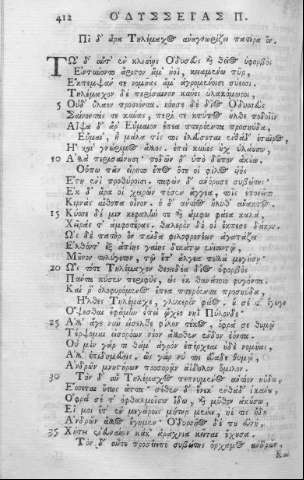 412 ΟΔΥΣΣΕΙΑΣ Π.
Πῖ δ' ἄρα Τηλέμαχος ἀναγνωρίζει πατέρα ὅν.
Τὼ δ' αὖτ' ἐν κλισίῃς Ὀδυσεὺς καὶ δῖος ὑφορβὸς
Ἐντύνοντο ἄριστον ἅμ' ἠοῖ, κηαμένω πῦρ,
Ἔκπεμψάν τε νομῆας ἅμ' ἀγρομένοισι σύεσσι.
Τηλέμαχον δὲ περίσσαινον κύνες ὑλακόμωροι,
5 Οὐδ' ὕλαον προσιόντα. νόησε δὲ δῖος Ὀδυσσεὺς
Σαίνοντάς τε κύνας, περί τε κτύπος ἦλθε ποδοῖιν
Αἶψα δ' ἄρ' Εὔμαιον ἔπεα πτερόεντα προσηύδα,
Εὔμαι', ἦ μάλα τίς τοι ἐλεύσεται ἐνθάδ' ἑταῖρος,
Ἢ καὶ γνώριμος ἄλλος. ἐπεὶ κύνες οὐχ ὑλάουσιν,
10 Ἀλλὰ περισσαίνουσι· ποδῶν δ' ὑπὸ δοῦπον ἀκούω.
Οὔπω πᾶν εἴρητο ἔπος ὅτε οἱ φίλος υἱὸς
Ἔστη ἐνὶ προθύροισι. ταφὼν δ' ἀνόρουσε συβώτης·
Ἐκ δ' ἄρα οἱ χειρῶν πέσον ἄγγεα, τοῖς ἐπονεῖτο
Κιρνὰς αἴθοπα οἶνον. ὁ δ' ἀντίος ἤλυθ' ἄνακτος.
15 Κύσσε δέ μιν κεφαλήν τε καὶ ἄμφω φάεα καλὰ,
Χεῖράς τ' ἀμφοτέρας. θαλερὸν δέ οἱ ἔκπεσε δάκρυ.
Ὡς δὲ πατὴρ ὃν παῖδα φιλοφρονέων ἀγαπάζει
Ἐλθόντ' ἐξ ἀπίης γαίης δεκάτῳ ἐνιαυτῷ,
Μοῦνον τηλύγετον, τῷ ἔπ' ἄλγεα πολλὰ μογήσῃ·
20 Ὣς τότε Τηλέμαχον θεοειδέα δῖος ὑφορβὸς
Πάντα κύσεν περιφὺς, ὡς ἐκ θανάτοιο φυγόντα.
Καί ῥ' ὀλοφυρόμενος ἔπεα πτερόεντα προσηύδα,
Ἦλθες Τηλέμαχε, γλυκερὸν φάος. οὔ σ' ἔτ' ἔγωγε
Ὄψεσθαι ἐφάμην ἐπεὶ ᾤχεο νηῒ Πύλονδε·
25 Ἀλλ' ἄγε νῦν εἴσελθε φίλον τέκος, ὄφρα σε θυμῷ
Τέρψομαι εἰσορόων νέον ἄλλοθεν ἔνδον ἐόντα.
Οὐ μὲν γάρ τι θάμ' ἀγρὸν ἐπέρχεαι οὐδὲ νομῆας,
Ἀλλ' ἐπιδημεύεις. ὣς γάρ νύ τοι εὔαδε θυμῷ,
Ἀνδρῶν μνηστήρων προσορᾶν ἀΐδηλον ὅμιλον.
30 Τὸν δ' αὖ Τηλέμαχος πεπνυμένος ἀντίον ηὔδα,
Ἔσσεται οὕτως ἄττα· σέθεν δ' ἕνεκ' ἐνθάδ' ἱκάνω,
Ὄφρα σέ τ' ὀφθαλμοῖσιν ἴδω, καὶ μῦθον ἀκούσω,
Εἴ μοι ἔτ' ἐν μεγάροις μήτηρ μένει, ἦέ τις ἤδη
Ἀνδρῶν ἄλλος ἔγημεν· Ὀδυσσῆος δέ που εὐνὴ
35 Χήτει ἐνευναίων κάκ' ἀράχνια κεῖται ἔχουσα.
Τὸν δ' αὖτε προσέειπε συβώτης ὄρχαμος ἀνδρῶν,
Καὶ